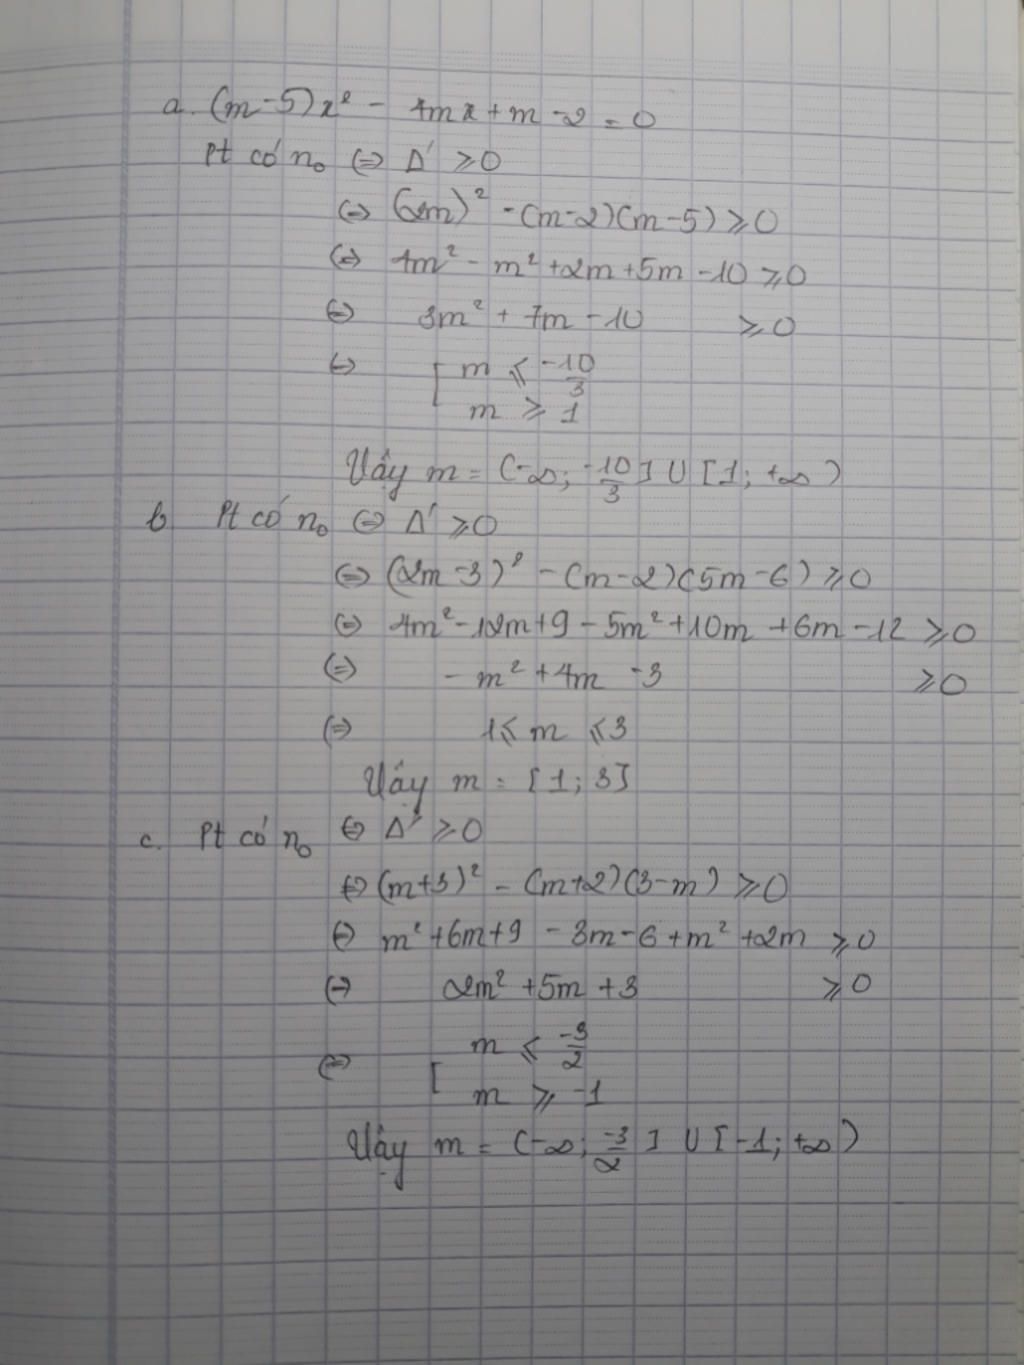 a. (m-5)x² - 4mx + m - 2 = 0
Pt có n₀ ⇔ Δ' ⩾ 0
⇔ (2m)² - (m-2)(m-5) ⩾ 0
⇔ 4m² - m² + 2m + 5m - 10 ⩾ 0
⇔ 3m² + 7m - 10 ⩾ 0
⇔ [ m ⩽ -10/3
m ⩾ 1
Vậy m = (-∞; -10/3] U [1; +∞)
b Pt có n₀ ⇔ Δ' ⩾ 0
⇔ (2m-3)² - (m-2)(5m-6) ⩾ 0
⇔ 4m² - 12m + 9 - 5m² + 10m + 6m - 12 ⩾ 0
⇔ - m² + 4m - 3 ⩾ 0
⇔ 1 ⩽ m ⩽ 3
Vậy m = [1; 3]
c. Pt có n₀ ⇔ Δ' ⩾ 0
⇔ (m+3)² - (m+2)(3-m) ⩾ 0
⇔ m² + 6m + 9 - 3m - 6 + m² + 2m ⩾ 0
⇔ 2m² + 5m + 3 ⩾ 0
⇔ [ m ⩽ -3/2
m ⩾ -1
Vậy m = (-∞; -3/2] U [-1; +∞)